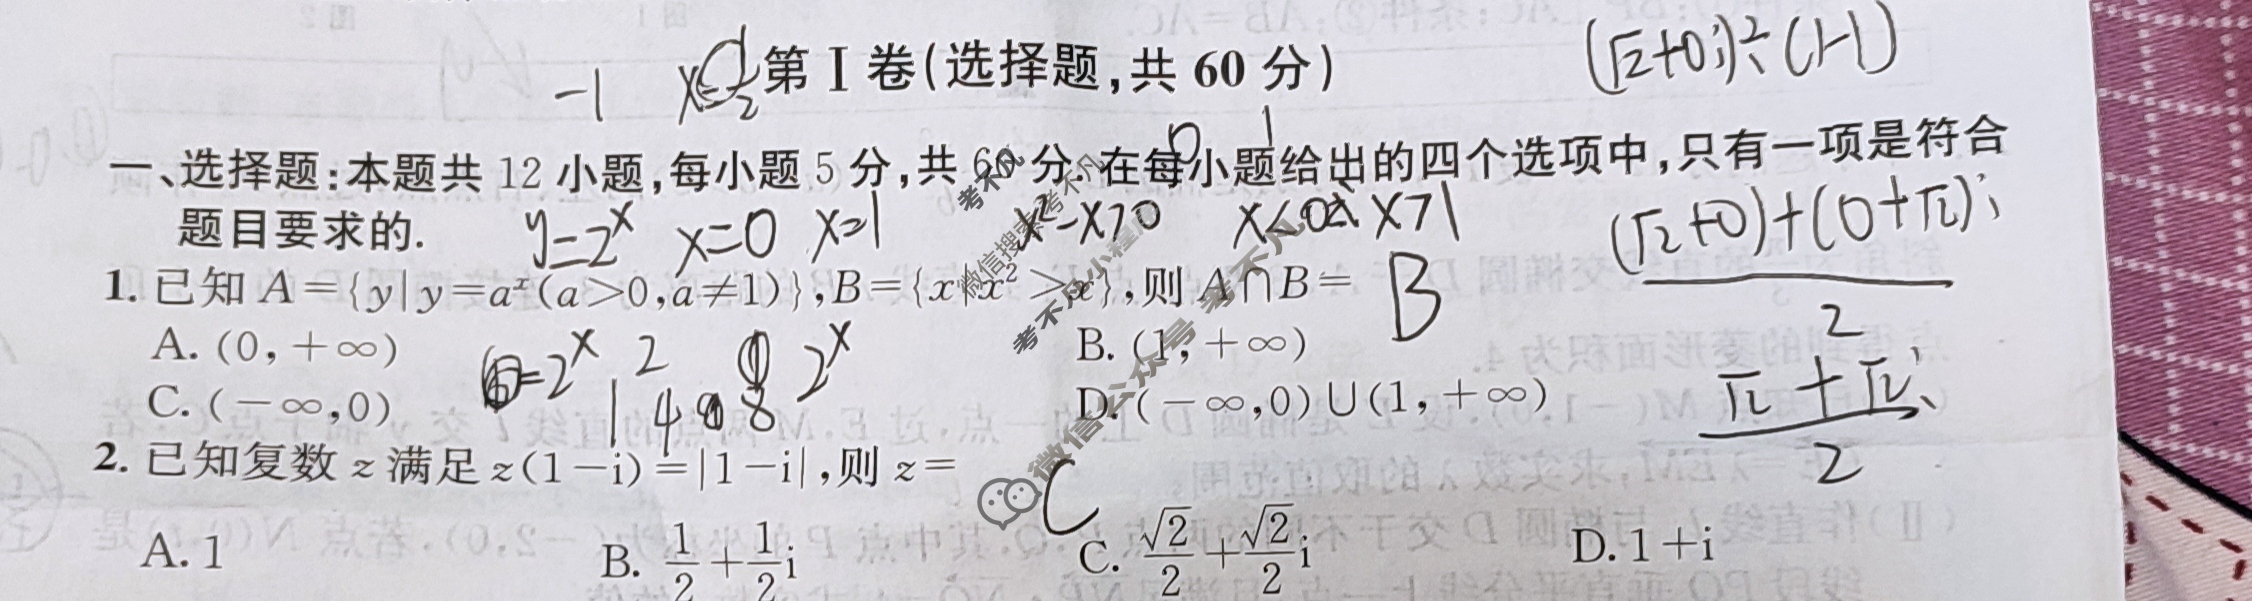 第Ⅰ卷(选择题,共 60 分)
-1
(√2+0i)÷(1-i)
一、选择题:本题共 12 小题,每小题 5 分,共 60 分,在每小题给出的四个选项中,只有一项是符合
题目要求的.
0 1
y=2^x x=0 x=1 x²-x>0 x<0 x>1
(√2+0)+(0+√2)i
2
1. 已知 A={y|y=a^x(a>0,a≠1)},B={x|x²>x},则 A∩B= B
A. (0,+∞) B. (1,+∞)
=2^x 2 2^x
√2+√2i
2
C. (-∞,0) D. (-∞,0)∪(1,+∞)
1 4 8
2. 已知复数 z 满足 z(1-i)=|1-i|,则 z= C
A. 1 B. 1/2+1/2i C. √2/2+√2/2i D. 1+i
考不凡
微信搜索小程序
考不凡
微信公众号 考不凡